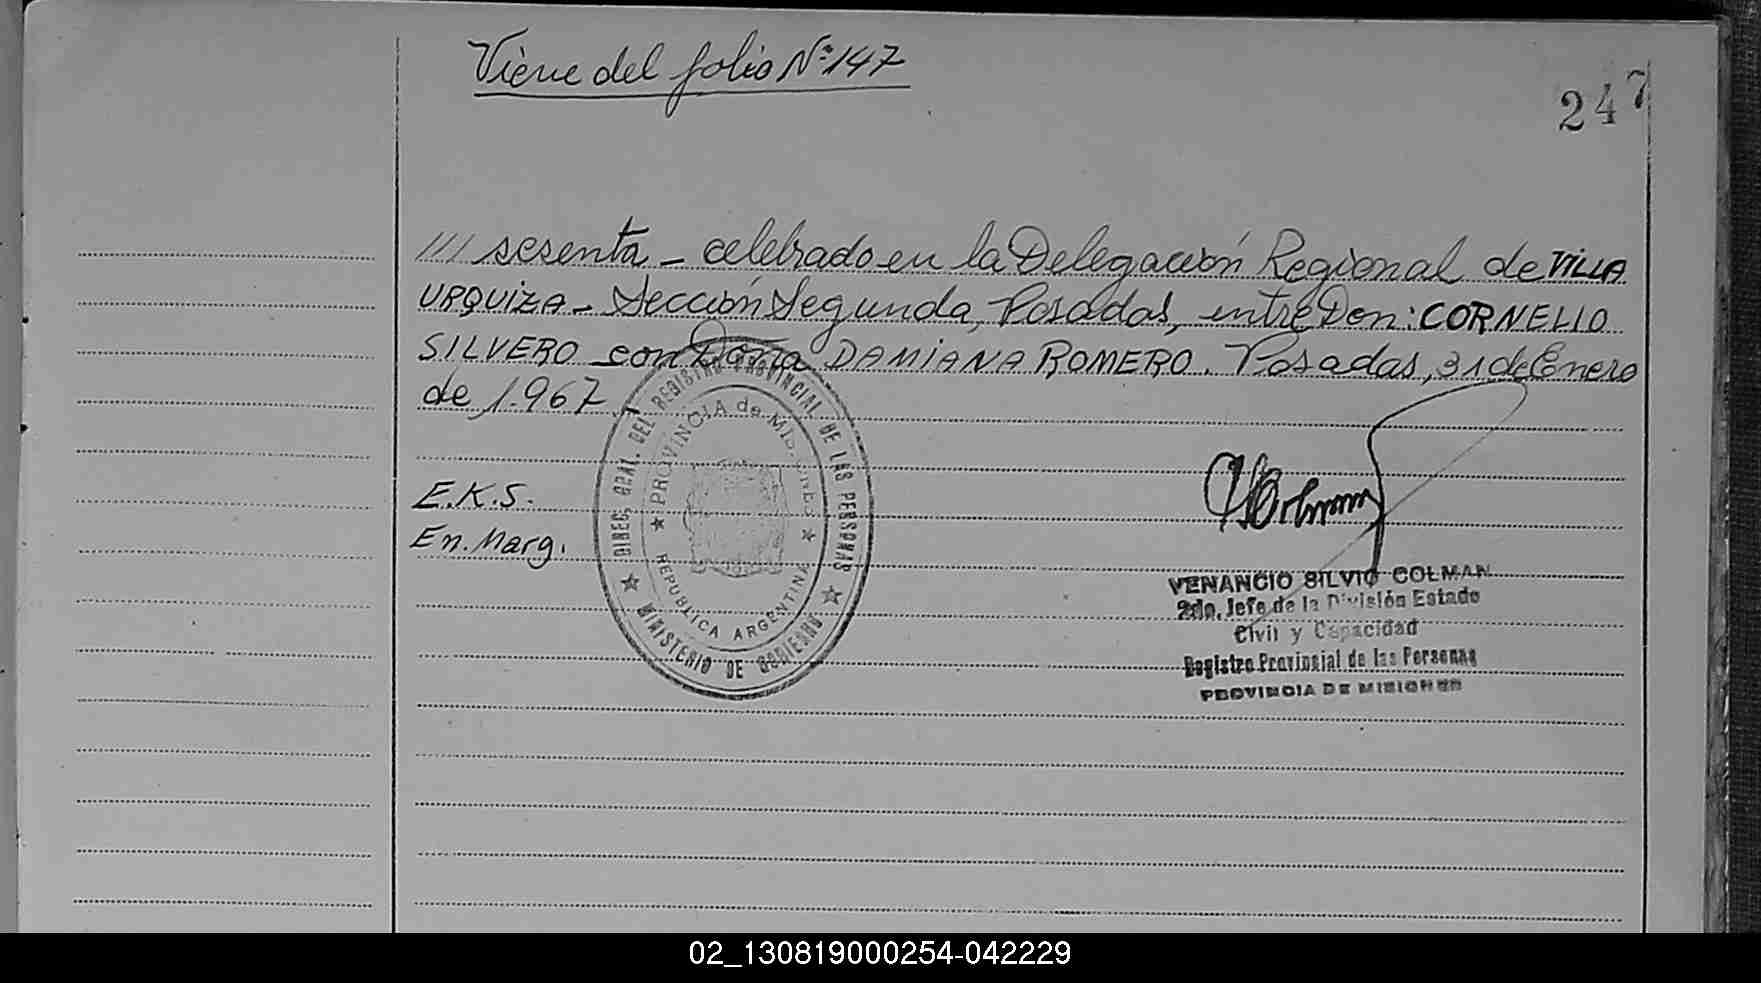 Viene del folio Nº 147
247
/// sesenta - celebrado en la Delegación Regional de VILLA
URQUIZA - Sección Segunda, Posadas, entre Don: CORNELIO
SILVERO con Doña DAMIANA ROMERO. Posadas, 31 de Enero
de 1.967
E.K.S.
En. Marg.
DIREC. GRAL. DEL REGISTRO PROVINCIAL DE LAS PERSONAS
PROVINCIA de MISIONES
REPUBLICA ARGENTINA
MINISTERIO DE GOBIERNO
VENANCIO SILVIO COLMAN
2do. Jefe de la División Estado
Civil y Capacidad
Registro Provincial de las Personas
PROVINCIA DE MISIONES
02_130819000254-042229